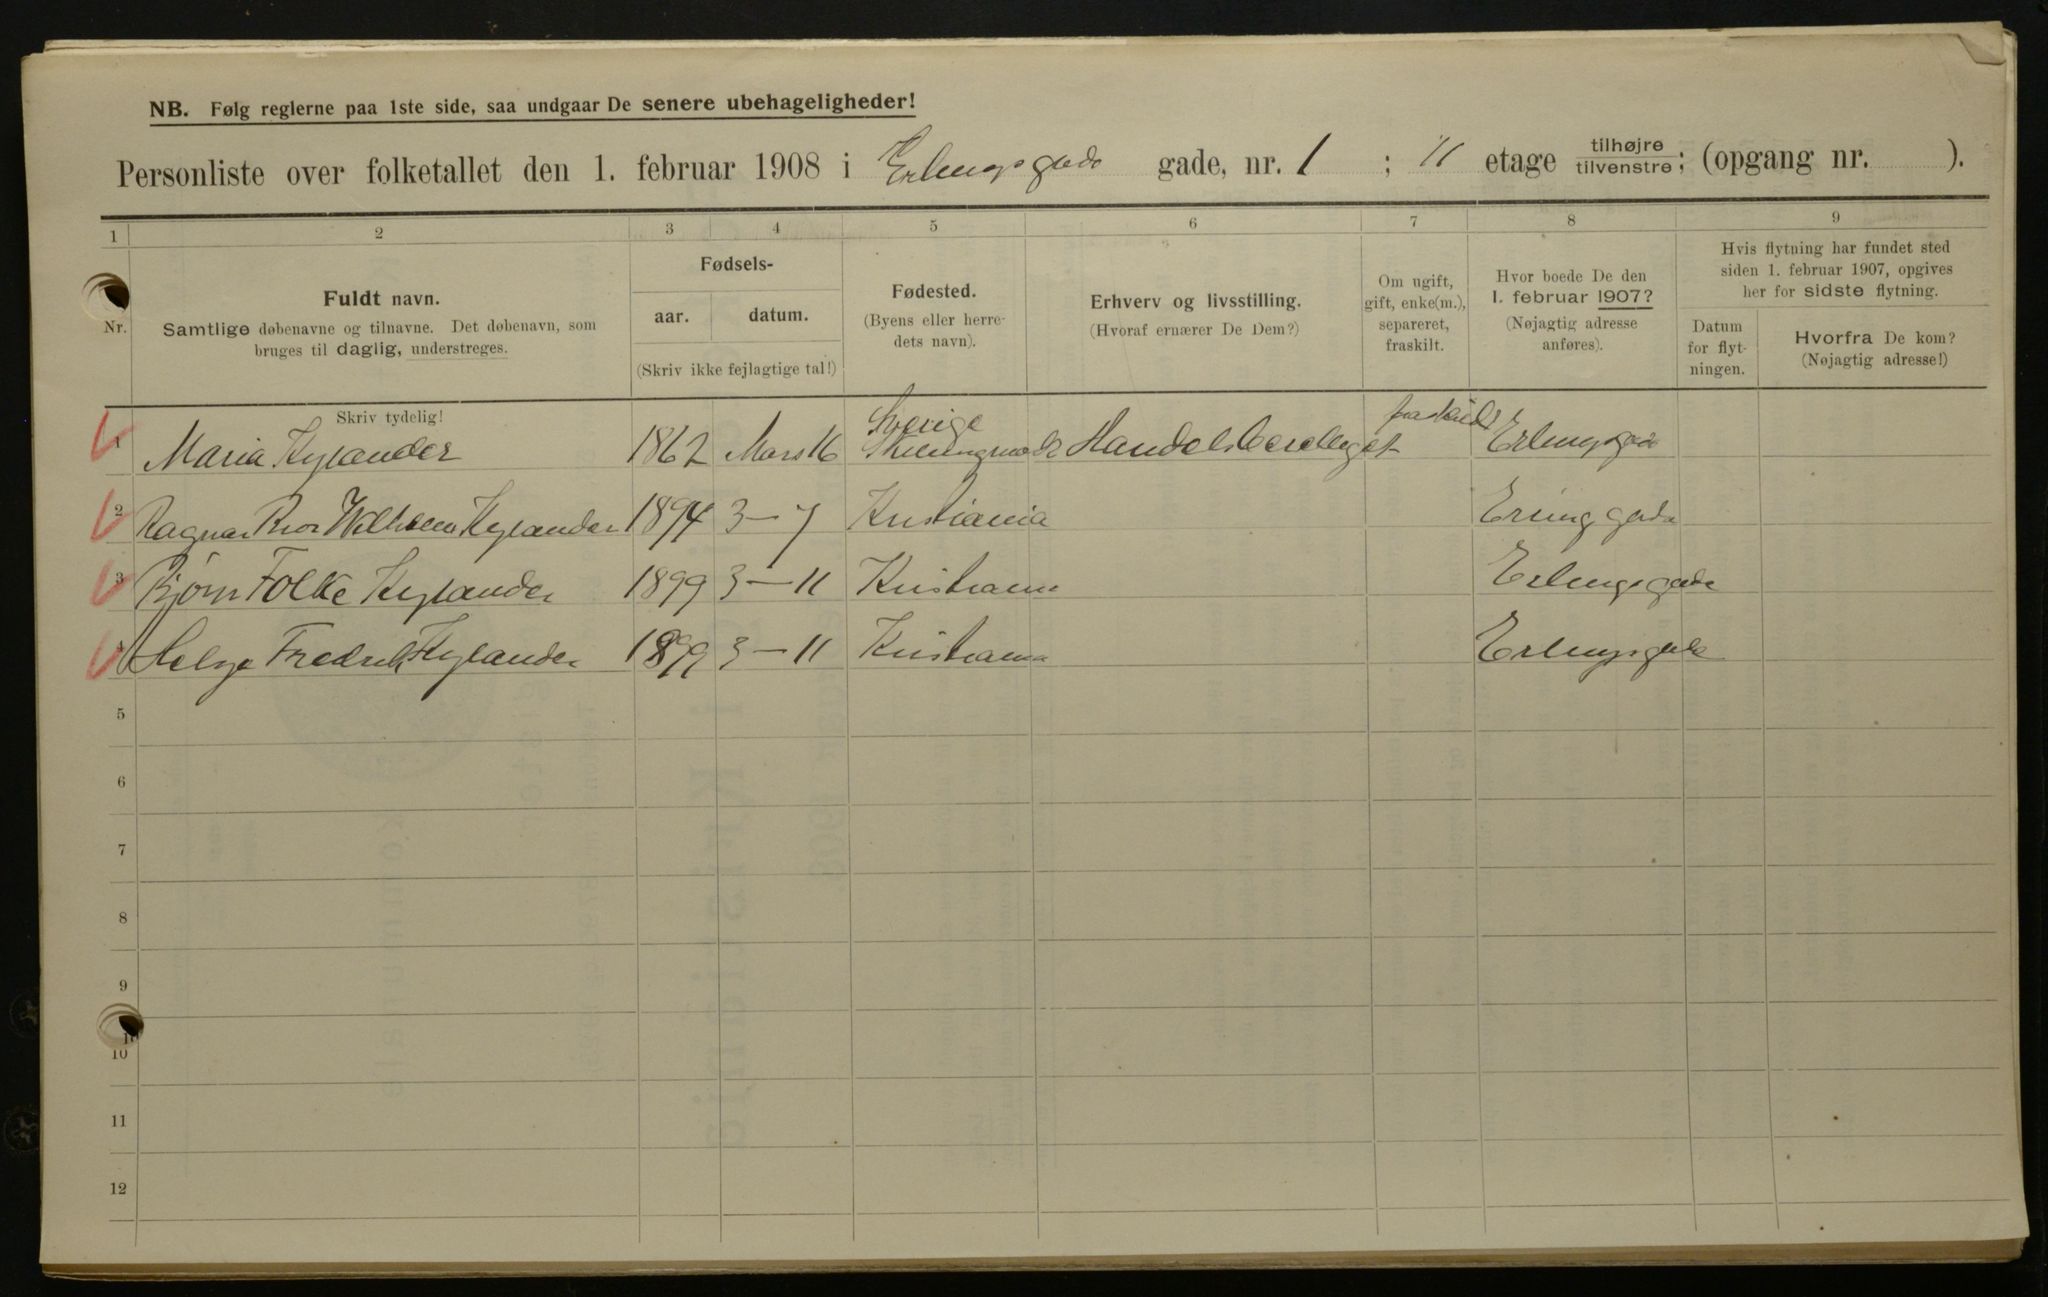 NB. Følg reglerne paa 1ste side, saa undgaar De senere ubehageligheder!
Personliste over folketallet den 1. februar 1908 i Erlingsgade gade, nr. 1 ; 11 etage tilhøjre tilvenstre; (opgang nr. ).
1 2 3 4 5 6 7 8 9
Nr.
Fuldt navn.
Samtlige døbenavne og tilnavne. Det døbenavn, som
bruges til daglig, understreges.
Skriv tydelig!
Fødsels-
aar. datum.
(Skriv ikke fejlagtige tal!)
Fødested.
(Byens eller herre-
dets navn).
Erhverv og livsstilling.
(Hvoraf ernærer De Dem?)
Om ugift,
gift, enke(m.),
separeret,
fraskilt.
Hvor boede De den
1. februar 1907?
(Nøjagtig adresse
anføres).
Hvis flytning har fundet sted
siden 1. februar 1907, opgives
her for sidste flytning.
Datum
for flyt-
ningen.
Hvorfra De kom?
(Nøjagtig adresse!)
Sverige fraskildt
1 Maria Hylander 1862 Mars 16 Handelsberettiget Erlingsgade
2 Ragnar Wilhelm Hylander 1894 3-7 Kristiania Erlinggade
3 Bjørn Folke Hylander 1899 3-11 Kristiania Erlingsgade
4 Helge Fredrik Hylander 1899 3-11 Kristiania Erlingsgade
5
6
7
8
9
10
10
11
12